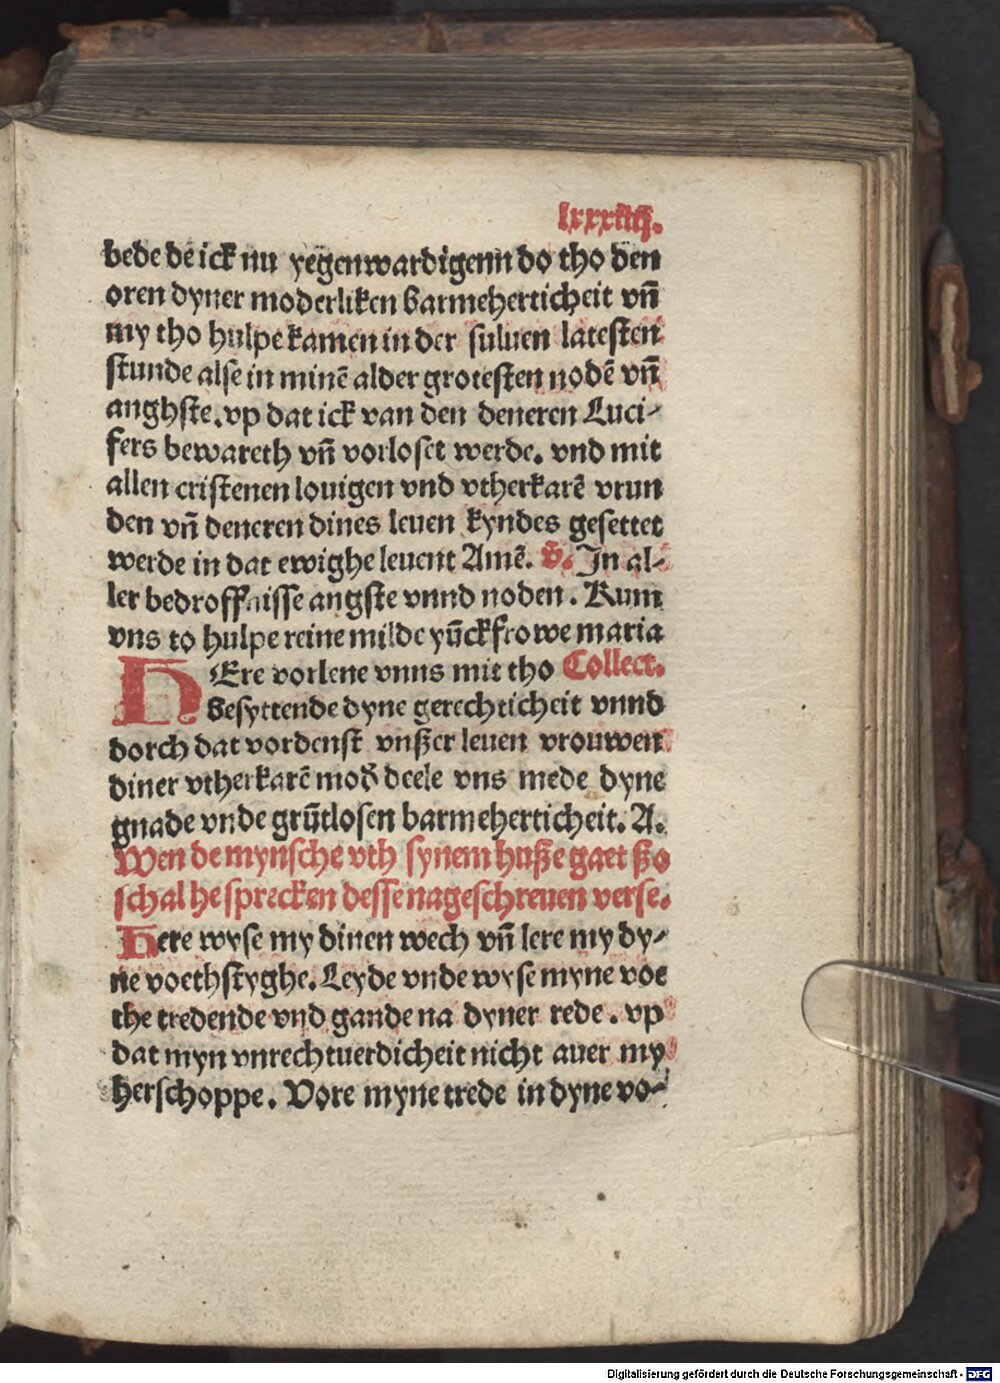 lxxxiiij.
bede de ick nu yegenwardigenn do tho den
oren dyner moderliken barmeherticheit vñ
my tho hulpe kamen in der suluen latesten
stunde alse in minē alder grotesten nodē vñ
anghste. vp dat ick van den deneren Luci-
fers bewareth vñ vorloset werde. vnd mit
allen cristenen louigen vnd vtherkarē vrun
den vñ deneren dines leuen kyndes gesettet
werde in dat ewighe leuent Amē. v̄. In al-
ler bedroffnisse angste vnnd noden. Kum
vns to hulpe reine milde yūckfrowe maria
HEre vorlene vnns mit tho Collect.
besyttende dyne gerechticheit vnnd
dorch dat vordenst vnßer leuen vrouwen
diner vtherkarē mod̄ deele vns mede dyne
gnade vnde grūtlosen barmeherticheit. A.
Wen de mynsche vth synem huße gaet ßo
schal he sprecken desse nageschreuen verse.
Here wyse my dinen wech vñ lere my dy-
ne voethstyghe. Leyde vnde wyse myne voe
the tredende vnd gande na dyner rede. vp
dat myn vnrechtuerdicheit nicht auer my
herschoppe. Vore myne trede in dyne vo-
Digitalisierung gefördert durch die Deutsche Forschungsgemeinschaft - DFG